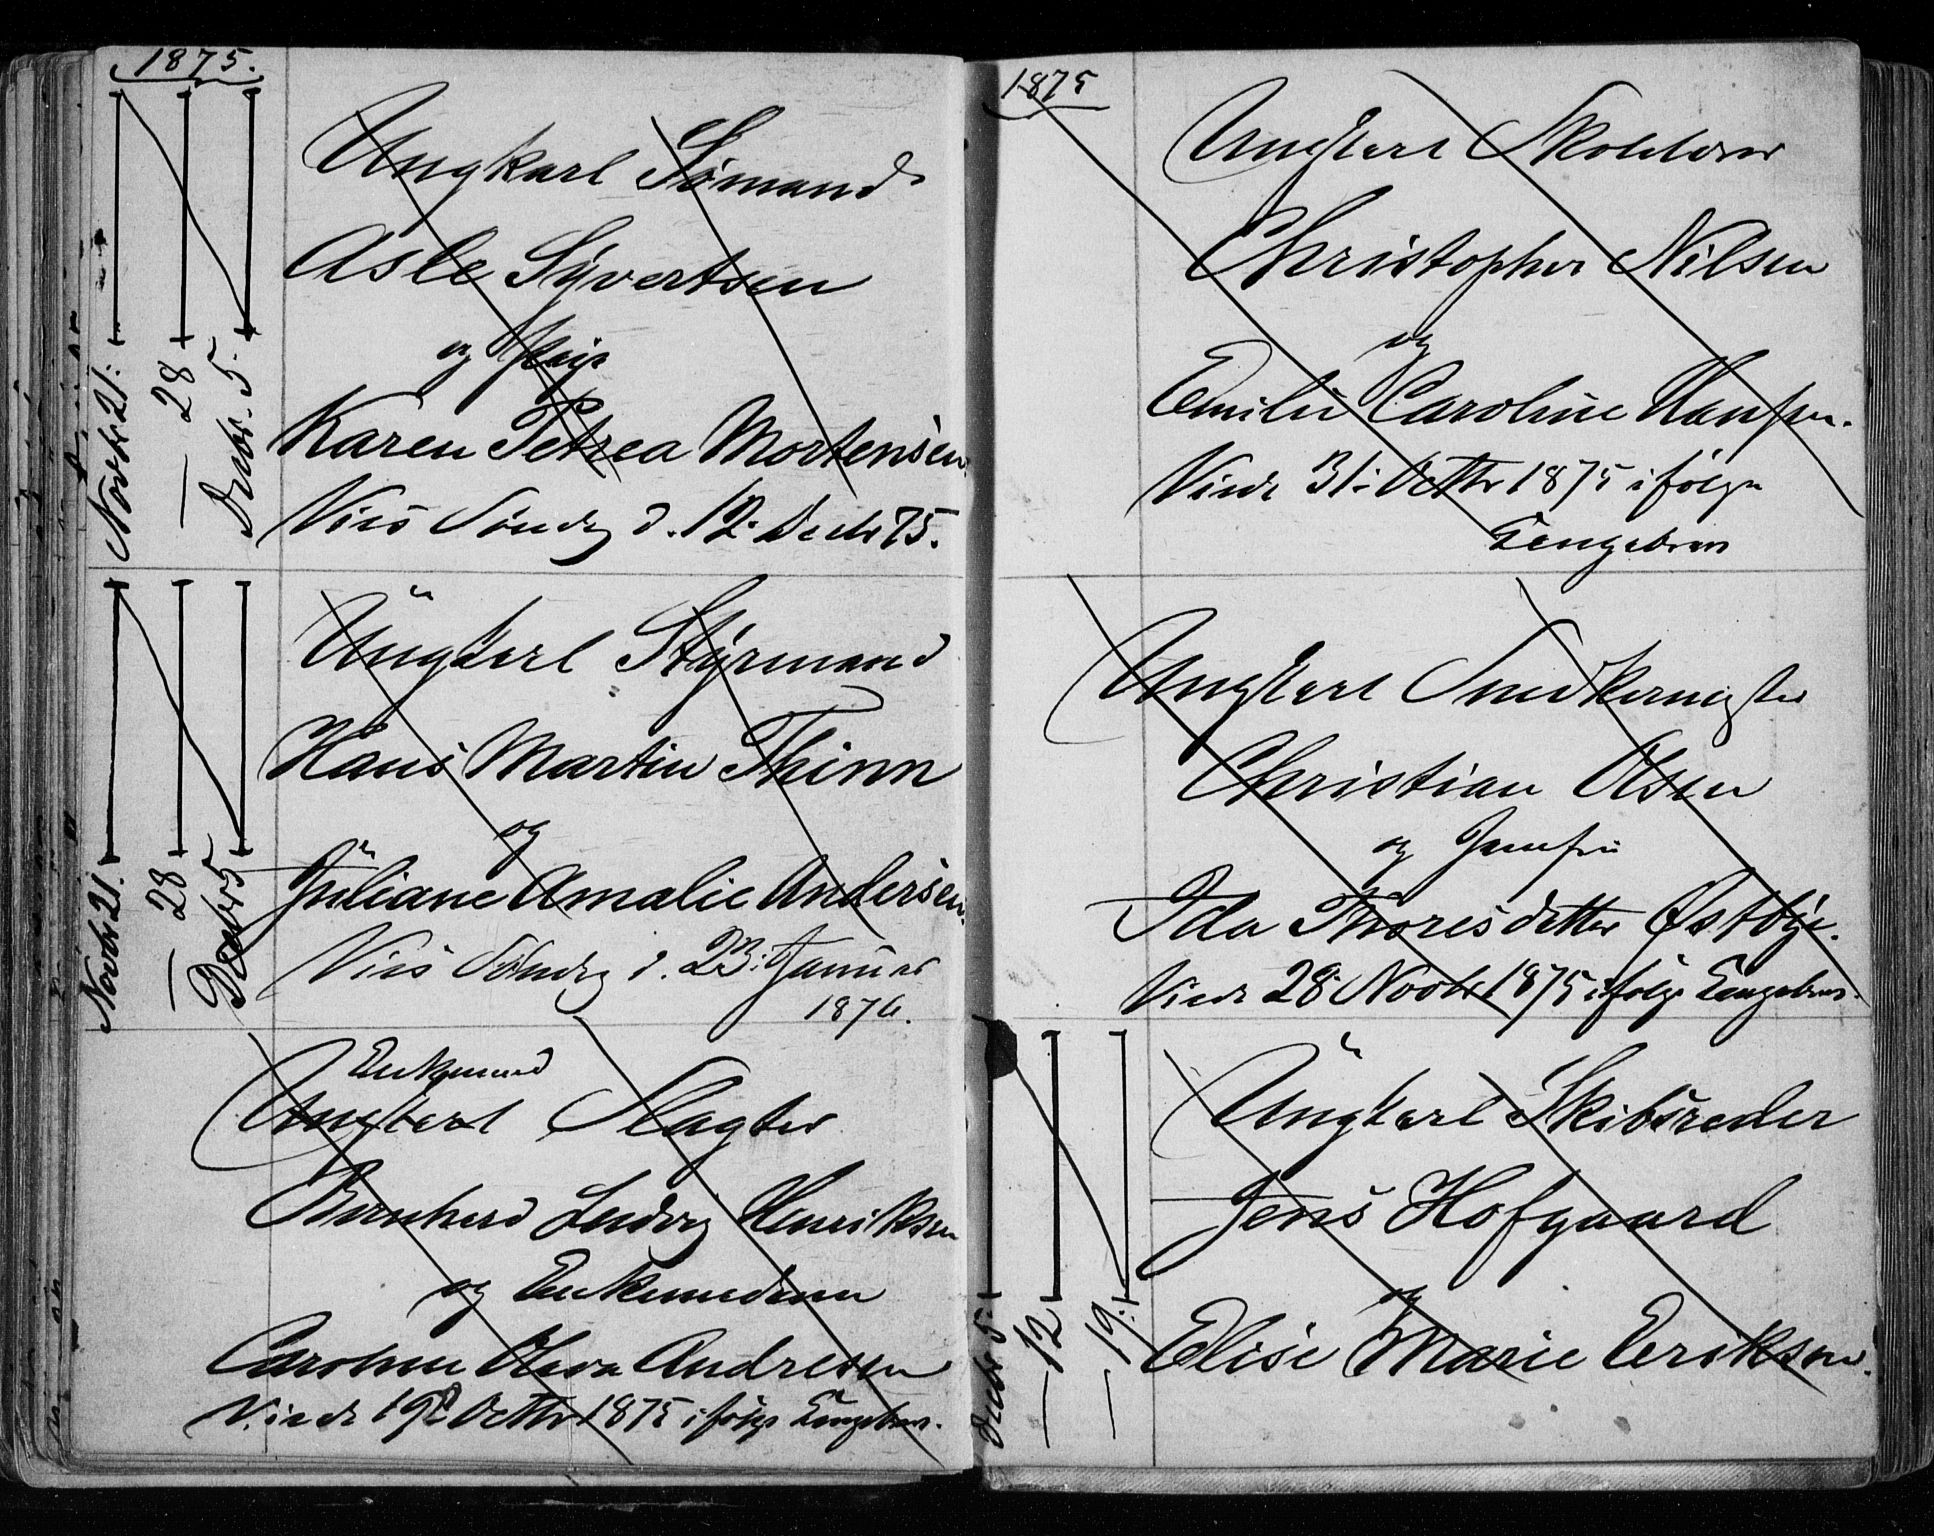 1875.
Novbr 21:
— 28
Decbr. 5.
Ungkarl Sømand
Asle Syvertsen
og Pige
Karen Petrea Mortensen
Vies Søndag d. 12. Decbr 75.
Novbr 21.
— 28
Decbr 5
Ungkarl Styrmand
Hans Martin Thinn
og
Juliane Amalie Andersen.
Vies Søndag d. 23: Januar
1876.
Enkemand
Ungkarl Slagter
Bernhard Ludvig Henriksen
og Enkemadam
Caroline Olava Andresen
Viede 19 Octbr 1875 ifølge Kongebrev.
1875
Ungkarl
Christopher Nilsen
og
Emilie Caroline Hansen.
Viede 31: Octbr 1875 ifølge
Kongebrev
Ungkarl Snedkermester
Christian Olsen
og Jomfru
Ida Thoresdatter Østbye.
Viede 28 Novbr 1875 ifølge Kongebrev.
Decbr 5:
— 12
— 19:
Ungkarl Skibsreder
Jens Hofgaard
og
Elise Marie Eriksen.